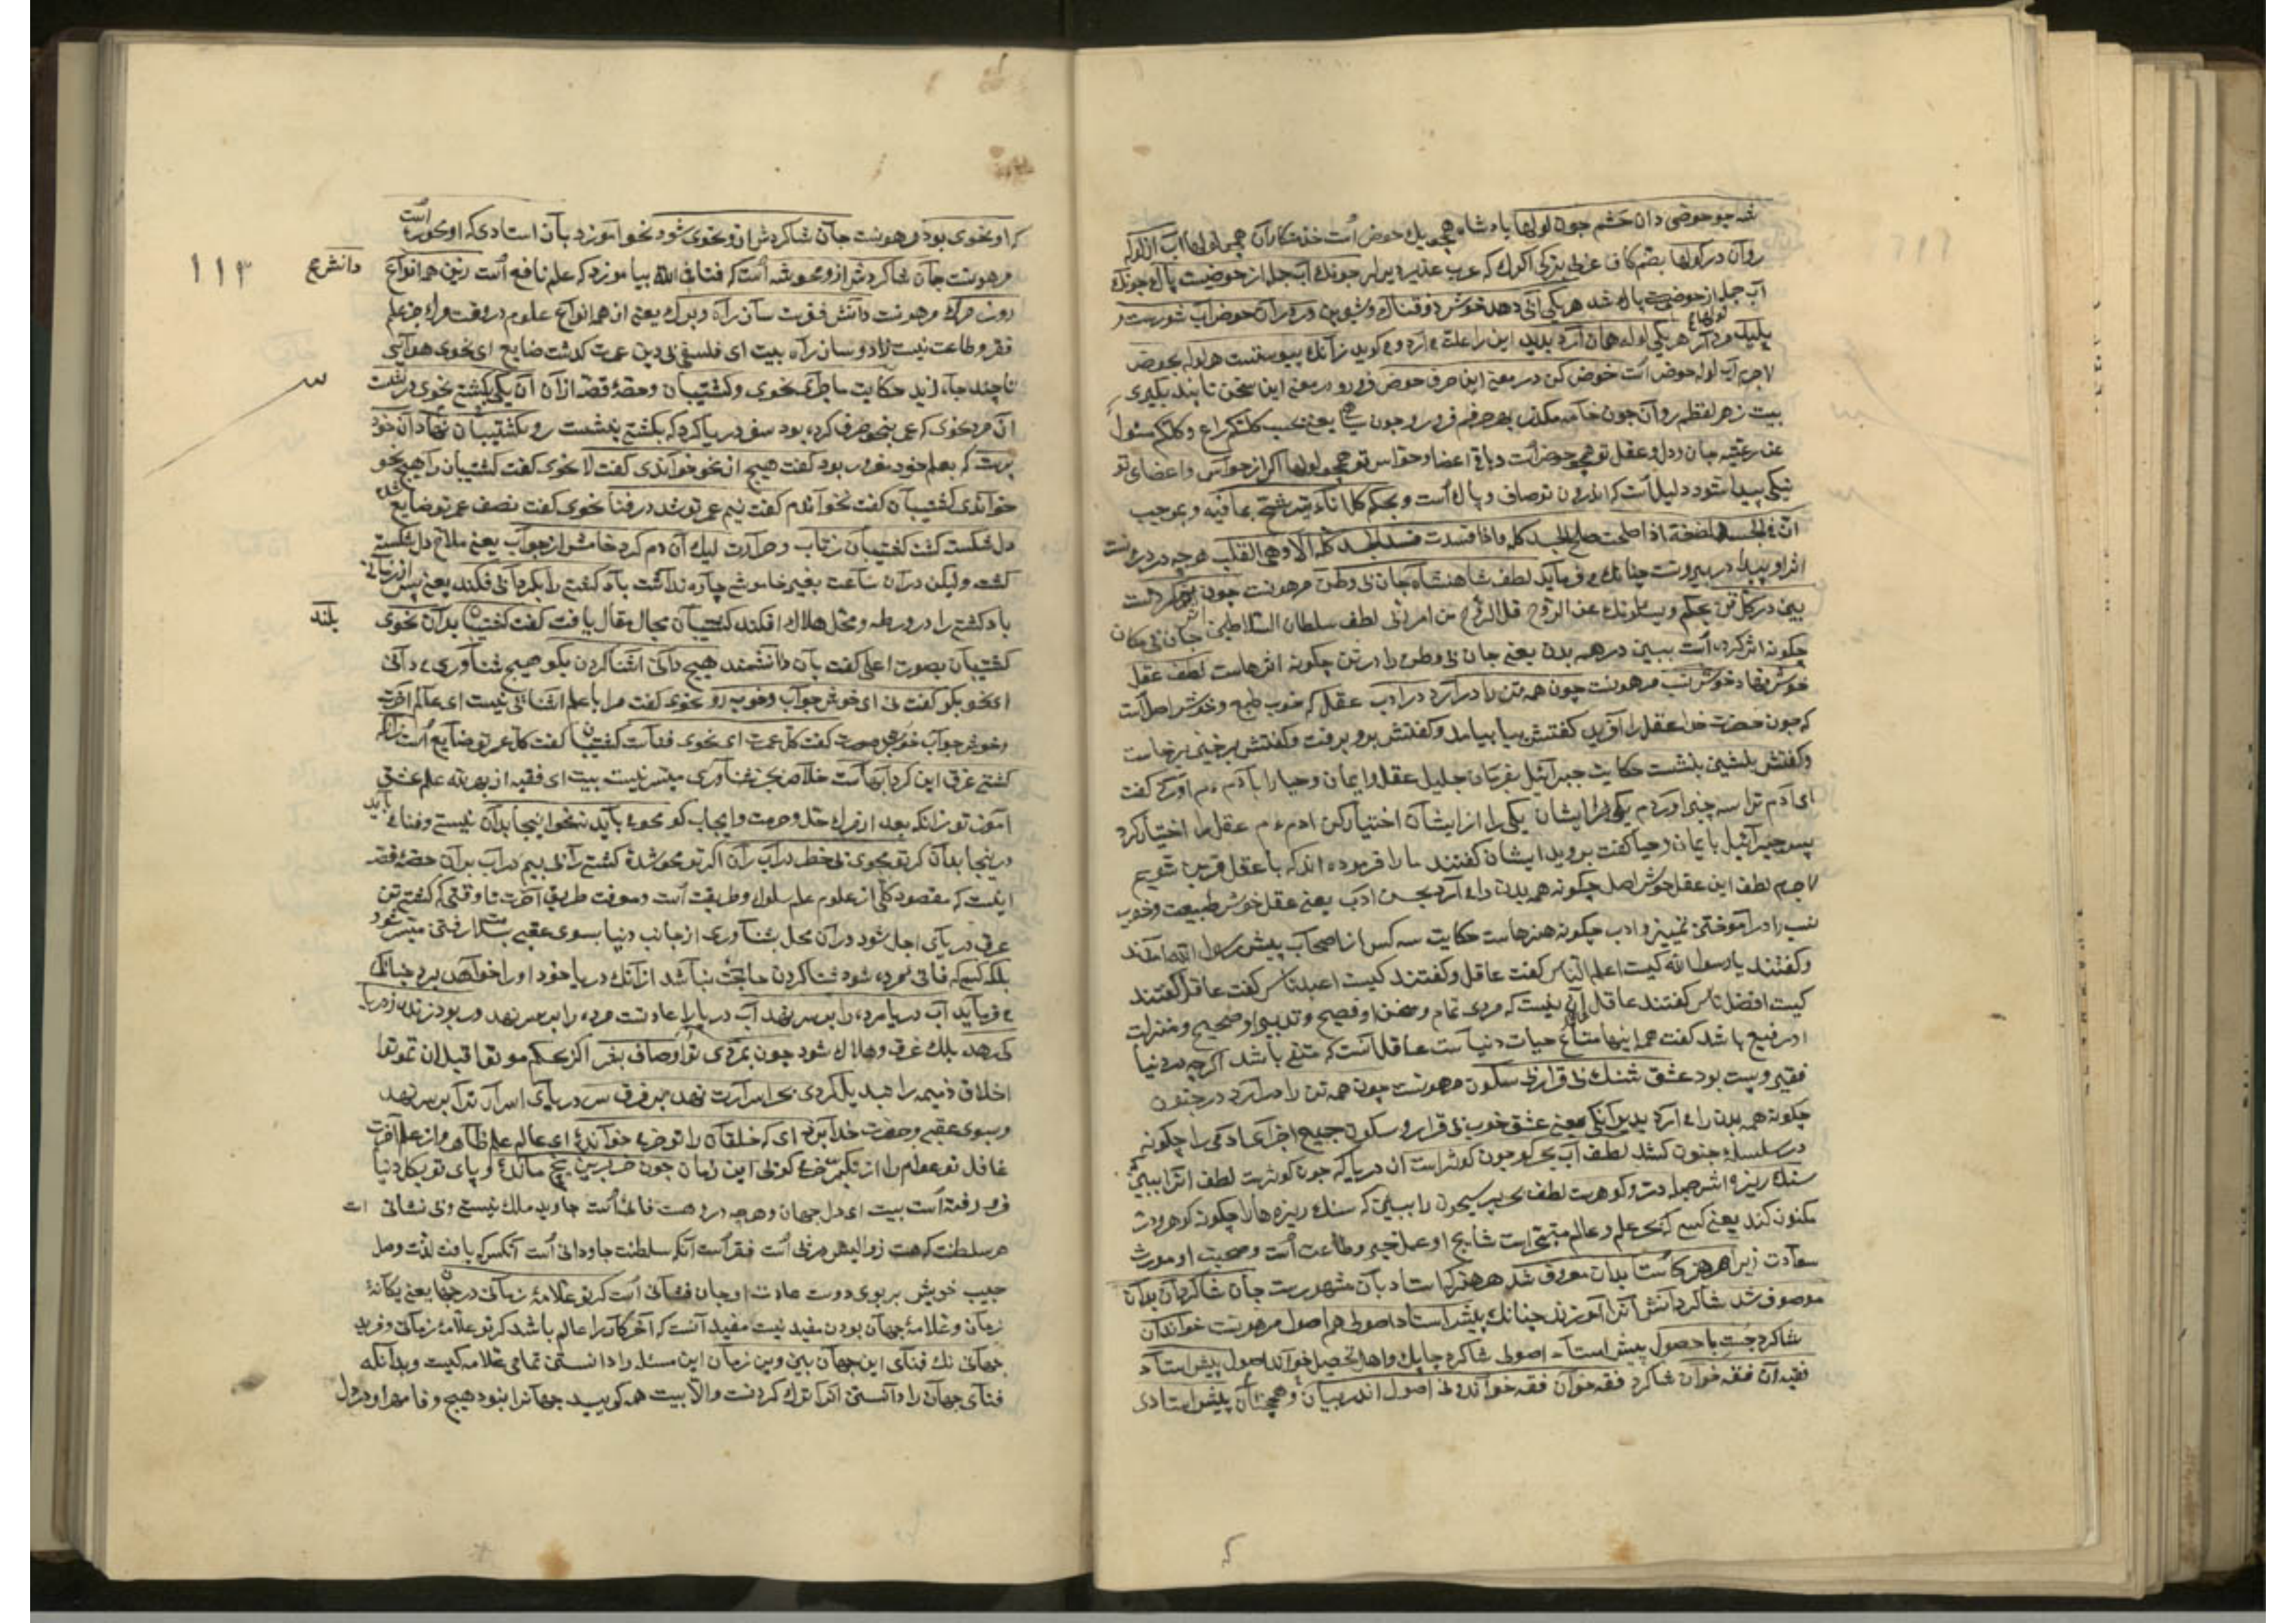 شه چو حوضی دان حشم چون لولها پادشاه همچو یك حوض است خدمتکاران همچو لولها آب از لوله
روان در کولها بضم کاف عربی
آب جمله از حوضیست پاك شد هر یکی آبی دهد خوش ذوقناك ور در آن حوض آب شورست و
پلید هر یکی لوله همان آرد پدید این را علت می آرد و میگوید زآنك پیوستست هر لوله بحوض
لاجرم آب لوله حوض است خوض کن در معنی این حرف حوض فرو رو در معنی این سخن تا پند بگیری
بیت ز هر لفظم روان چون خامه مگذر بهر حرفم فرو رو چون یعنی بحسب کلکم راع و کلکم مسئول
عن رعیته جان و دل و عقل تو همچو حوض است و باقی اعضا و حواس تو همچو لولها اگر از حواس و اعضای تو
نیکی پیدا شود دلیل است که اندرون تو صاف و پاك است و بحکم کل اناء یترشح بما فیه و بموجب
ان فی الجسد لمضغة اذا صلحت صلح الجسد کله و اذا فسدت فسد الجسد کله الا و هی القلب هر چه در درونست
اثر او پیدا در بیرونست چنانك می فرماید لطف شاهنشاه جان بی وطن مرهونت چون اثر کردست
بین در کل تن بحکم و یسئلونك عن الروح قل الروح من امر ربی لطف سلطان السلاطین جان بی مکان
چگونه اثر کرده است ببین در همه بدن یعنی جان بی وطن را در تن چگونه اثرهاست لطف عقل
خوش نهاد خوش نسب مرهونت چون همه تن را در آرد در ادب عقل که خوب طبع و خوش اصل است
که چون حضرت خدا عقل را آفرید گفتش بیا بیامد و گفتش برو برفت و گفتش برخیز برخاست
و گفتش بنشین بنشست حکایت جبرائیل بفرمان جلیل عقل و ایمان و حیا را بآدم عم آورد گفت
ای آدم ترا سه چیز آوردم یکی را از ایشان اختیار کن آدم عم عقل را اختیار کرد
پس جبرآئیل بایمان و حیا گفت بروید ایشان گفتند ما را فرموده اند که با عقل قرین شویم
لاجرم لطف این عقل خوش اصل چگونه همه بدن را می آرد بحسن ادب یعنی عقل خوش طبیعت و خوب
نسب را در آموختن تمییز و ادب چگونه هنرهاست حکایت سه کس از اصحاب پیش رسول الله آمدند
و گفتند یا رسول الله کیست اعلم الناس گفت عاقل و گفتند کیست اعبد ناس گفت عاقل گفتند
کیست افضل ناس گفتند عاقل آن نیست که مردی تمام و سخن او فصیح و تدبیر او صحیح و منزلت
او رفیع باشد گفت همه اینها متاع حیات دنیاست عاقل آنست که متقی باشد اگر چه در دنیا
فقیر و پست بود عشق شنك بی قرار بی سکون مرهونت چون همه تن را در آرد در جنون
چگونه همه بدن را می آرد بدیوانکی یعنی عشق خوب بی قرار و سکون جمیع اجزای آدمی را چگونه
در سلسله جنون کشد لطف آب بحر کو چون کوثر است آن دریا که چون کوثرست لطف اثرا ببین
سنك ریزه اش جمله در و گوهرست لطف بحر
مکنون کند یعنی کسی که بحر علم و عالم متبحر است نتایج او عمل خیر و طاعت است و صحبت او مورث
سعادت زیرا هر هنر کاستا بدان معروف شد هر هنر که استاد بآن مشهورست جان شاگردان بدان
موصوف شد شاگردانش آنرا آموزند چنانك پیش استاد اصولی هم اصول مرهونت خواند آن
شاگرد چست با حصول پیش استاد اصولی شاگرد چابك و اهل تحصیل خواند اصول پیش استاد
فقیه آن فقه خوان شاگرد فقه خوان فقه خواند نی اصول اندر بیان و همچنان پیش استادی
که او نحوی بود مرهونت جان شاگردش ازو نحوی شود نحو آموزد بآن استادی که او نحوی است
مرهونت جان شاگردش ازو محو شه است که فنا فی الله بیاموزد که علم نافع است زین همه انواع
دانش ع
۱۱۳
روز مرك مرهونت دانش فقرست ساز راه و برك یعنی ازین همه انواع علوم در وقت مرك جز علم
فقر و طاعت نیست زاد و ساز راه بیت ای فلسفی بی دین عمرت گذشت ضایع ای نحوی هوآیی
تا چند جاء زید حکایت ماجرای نحوی و کشتیبان و حصهٔ قصه ازآن آن یکی نحوی بکشتی در نشست
آن مرد نحوی که عمر بنحو صرف کرده بود سفر دریا کرد که بکشتی بنشست رو بکشتیبان نهاد آن خود
پرست که بعلم خود مغرور بود گفت هیچ از نحو خواندی گفت لا نحوی گفت کشتیبان را هیچ نحو
خواندی کشتیبان گفت نخواندم گفت نیم عمر تو شد در فنا نحوی گفت نصف عمر تو ضایع شد
دل شکسته گشت کشتیبان ز تاب و حرارت لیك آن دم کرد خامش از جواب یعنی ملاح دل شکسته
گشت ولیکن در آن ساعت بغیر خاموشی چاره نداشت باد کشتی را بگردابی فکند یعنی پس از زمانی
باد کشتی را در ورطه و محل هلاك افکند کشتیبان مجال مقال یافت گفت کشتیبان بدان نحوی
بلند
کشتیبان بصوت اعلی گفت بآن دانشمند هیچ دانی آشنا کردن بگو هیچ شناوری می دانی
ای نحو بگو گفت نی ای خوش جواب و خوب رو نحوی گفت مرا با علم آشنائی نیست ای عالم آخرت
و خوش جواب خوش صحبت گفت کل عمرت ای نحوی فناست کشتیبان گفت کل عمر تو ضایع است زآنکه
کشتی غرق این گردابهاست خلاص بجز شناوری میسر نیست بیت ای فقیه از بهر لله علم عشق
آموز تو زآنکه بعد از مرك حل و حرمت و ایجاب کو محو می باید نه نحو اینجا بدان نیستی و فنا می باید
در اینجا بدان گر تو محوی بی خطر در آب ران اگر تو محو شدی کشتی را بی بیم در آب بران حصهٔ قصه
اینست که مقصود کلی از علوم علم سلوك و طریقت است و معرفت طریق آخرت تا وقتی که کشتی تن
غرق دریای اجل شود در آن محل بشناوری از جانب دنیا بسوی عقبی بسلامت رفتن میسر شود
بلکه کسی که فانی مرده شود شنا کردن حاجت نباشد از آنك دریا خود او را خواهد برد چنانك
می فرماید آب دریا مرده را بر سر نهد آب دریا را عادتست مرده را بر سر نهد ور بود زنده ز دریا
کی رهد بلك غرق و هلاك شود چون بمردی تو ز اوصاف بشر اگر بحکم موتوا قبل ان تموتوا
اخلاق ذمیمه را تبدیل کردی بحر اسرارت نهد بر فرق سر دریای اسرار ترا بر سر نهد
و بسوی عقبی و حضرت خدا برد ای که خلقان را تو خر می خواندهٔ ای عالم علم ظاهر و از علم آخرت
غافل تو عوام را از تکبر خر می گوئی این زمان چون خر برین یخ ماندهٔ و پای تو بکل دنیا
فرو رفته است بیت ای دل جهان و هر چه درو هست فانی است جاوید ملك نیستی و بی نشانی است
هر سلطنت که هست زوالیش در پی است فقر است آنکه سلطنت جاودانی است آنکس که یافت لذت وصل
حبیب خویش بر بوی دوست عادت او جان فشانی است گر تو علامهٔ زمانی در جهان یعنی یگانهٔ
زمان و علامهٔ جهان بودن مفید نیست مفید آنست که آخرکار را عالم باشد گر تو علامهٔ زمانی و فرید
جهانی نك فنای این جهان بین وین زمان این مسئله را دانستن تمامی علامه گیست و بدآنکه
فنای جهان را دانستن آنرا ترك کردنست و الا بیت همه گویید جهانرا نبود هیچ وفا مهر او در دل